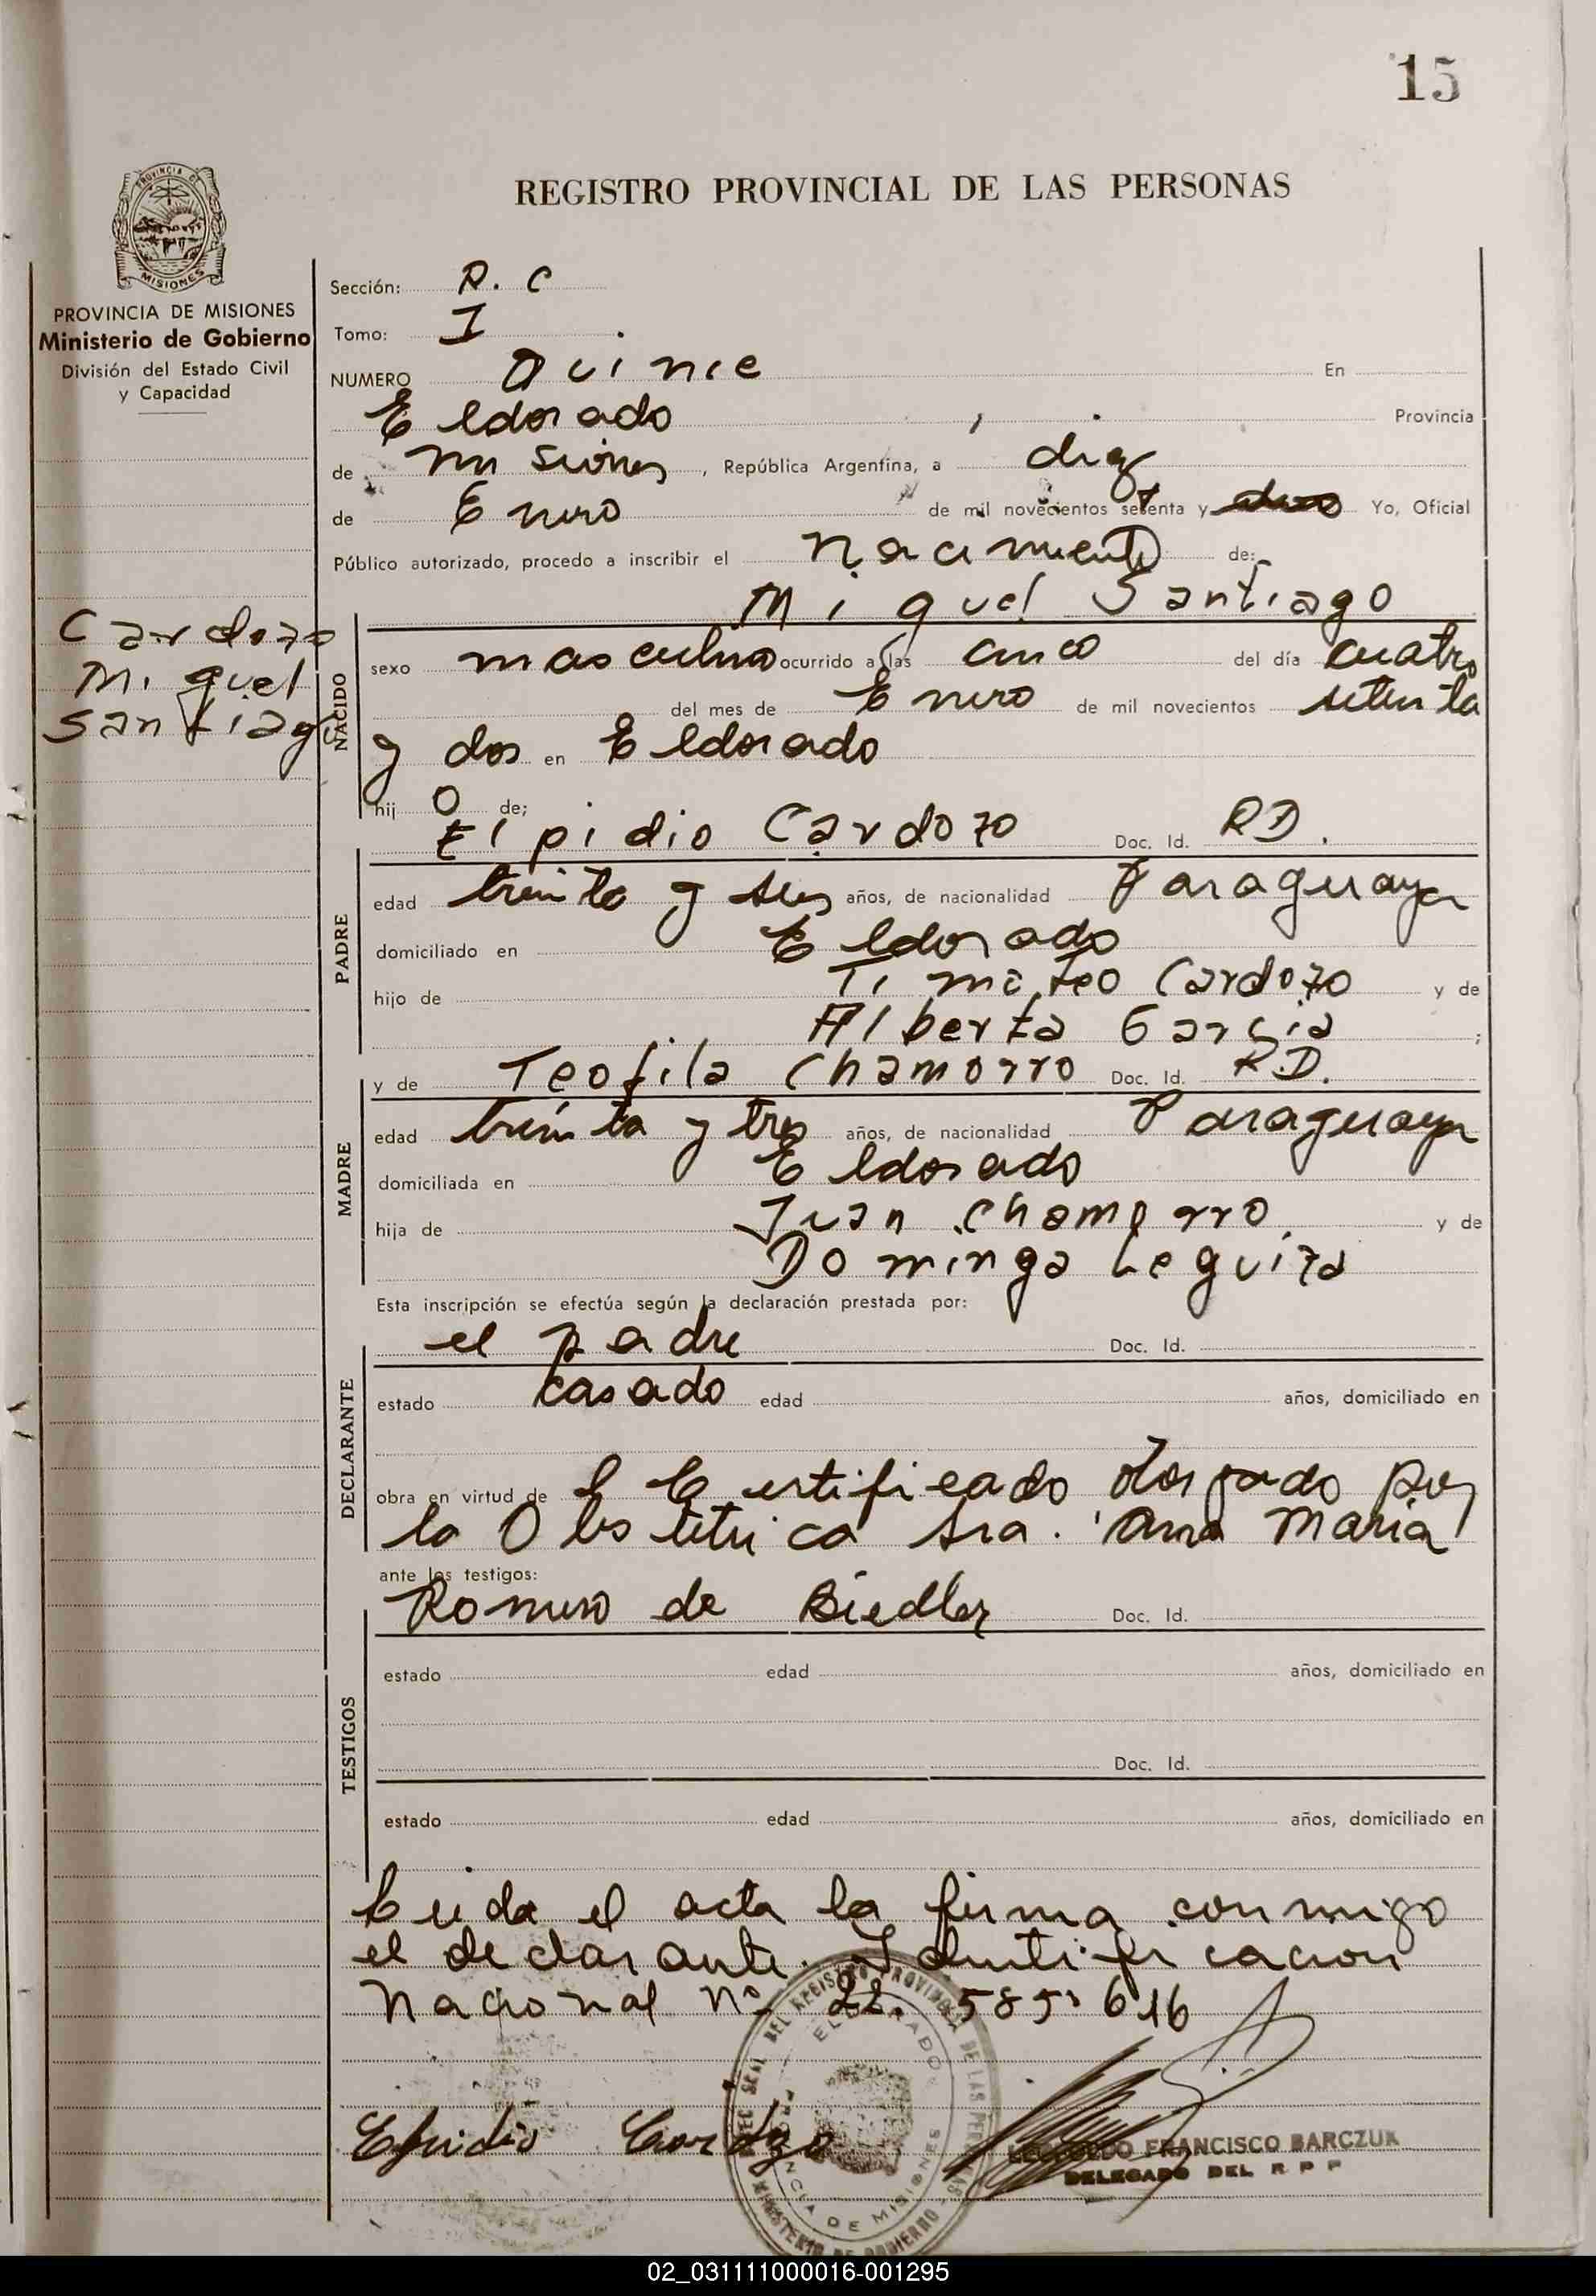 15
REGISTRO PROVINCIAL DE LAS PERSONAS
PROVINCIA DE MISIONES
Ministerio de Gobierno
División del Estado Civil
y Capacidad
Cardozo
Miguel
Santiago
Sección: R. C
Tomo: I
NUMERO Quince En
Eldorado, Provincia
de Misiones, República Argentina, a diez
de Enero de mil novecientos setenta y Yo, Oficial
Público autorizado, procedo a inscribir el nacimiento de:
Miguel Santiago
NACIDO
sexo masculino ocurrido a las cinco del día cuatro
del mes de Enero de mil novecientos setenta
y dos en Eldorado
hijo de;
Elpidio Cardozo Doc. Id. RD.
PADRE
edad treinta y seis años, de nacionalidad Paraguaya
domiciliado en Eldorado
hijo de Timoteo Cardozo y de
Alberta Garcia ;
y de Teofila Chamorro Doc. Id. R.D.
MADRE
edad treinta y tres años, de nacionalidad Paraguaya
domiciliada en Eldorado
hija de Juan Chamorro y de
Dominga Leguiza
Esta inscripción se efectúa según la declaración prestada por:
el padre Doc. Id.
DECLARANTE
estado casado edad años, domiciliado en
obra en virtud de Certificado otorgado por
la Obstetrica Sra. Ana Maria
ante los testigos:
Romero de Biedler Doc. Id.
TESTIGOS
estado edad años, domiciliado en
Doc. Id.
estado edad años, domiciliado en
Leida el acta la firma conmigo
el declarante. Identificacion
Nacional Nº 22.585.616
Elpidio Cardozo
LEOPOLDO FRANCISCO BARCZUK
DELEGADO DEL R P P
02_031111000016-001295